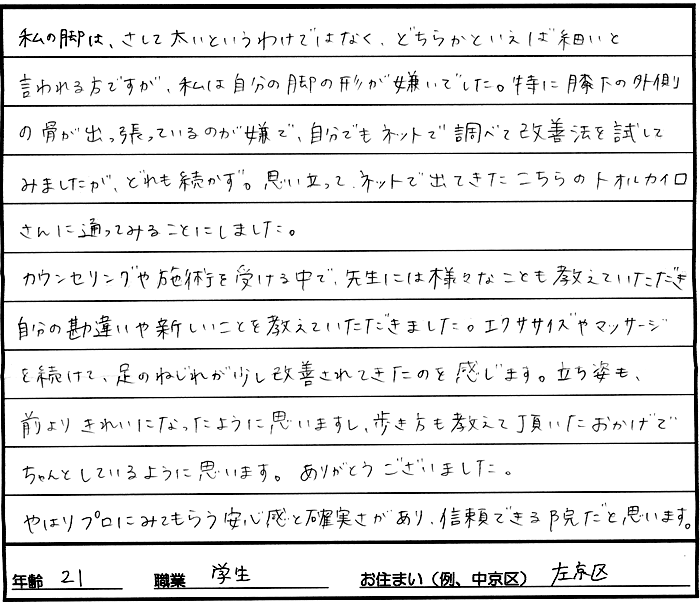 私の脚は、さして太いというわけではなく、どちらかといえば細いと
言われる方ですが、私は自分の脚の形が嫌いでした。特に膝下の外側
の骨が出っ張っているのが嫌で、自分でもネットで調べて改善法を試して
みましたが、どれも続かず。思い立って、ネットで出てきたこちらのトオルカイロ
さんに通ってみることにしました。
カウンセリングや施術を受ける中で、先生には様々なことも教えていただき
自分の勘違いや新しいことを教えていただきました。エクササイズやマッサージ
を続けて、足のねじれが少し改善されてきたのを感じます。立ち姿も、
前よりきれいになったように思いますし、歩き方も教えて頂いたおかげで
ちゃんとしているように思います。ありがとうございました。
やはりプロにみてもらう安心感と確実さがあり、信頼できる院だと思います。
年齢 21 職業 学生 お住まい（例、中京区） 左京区